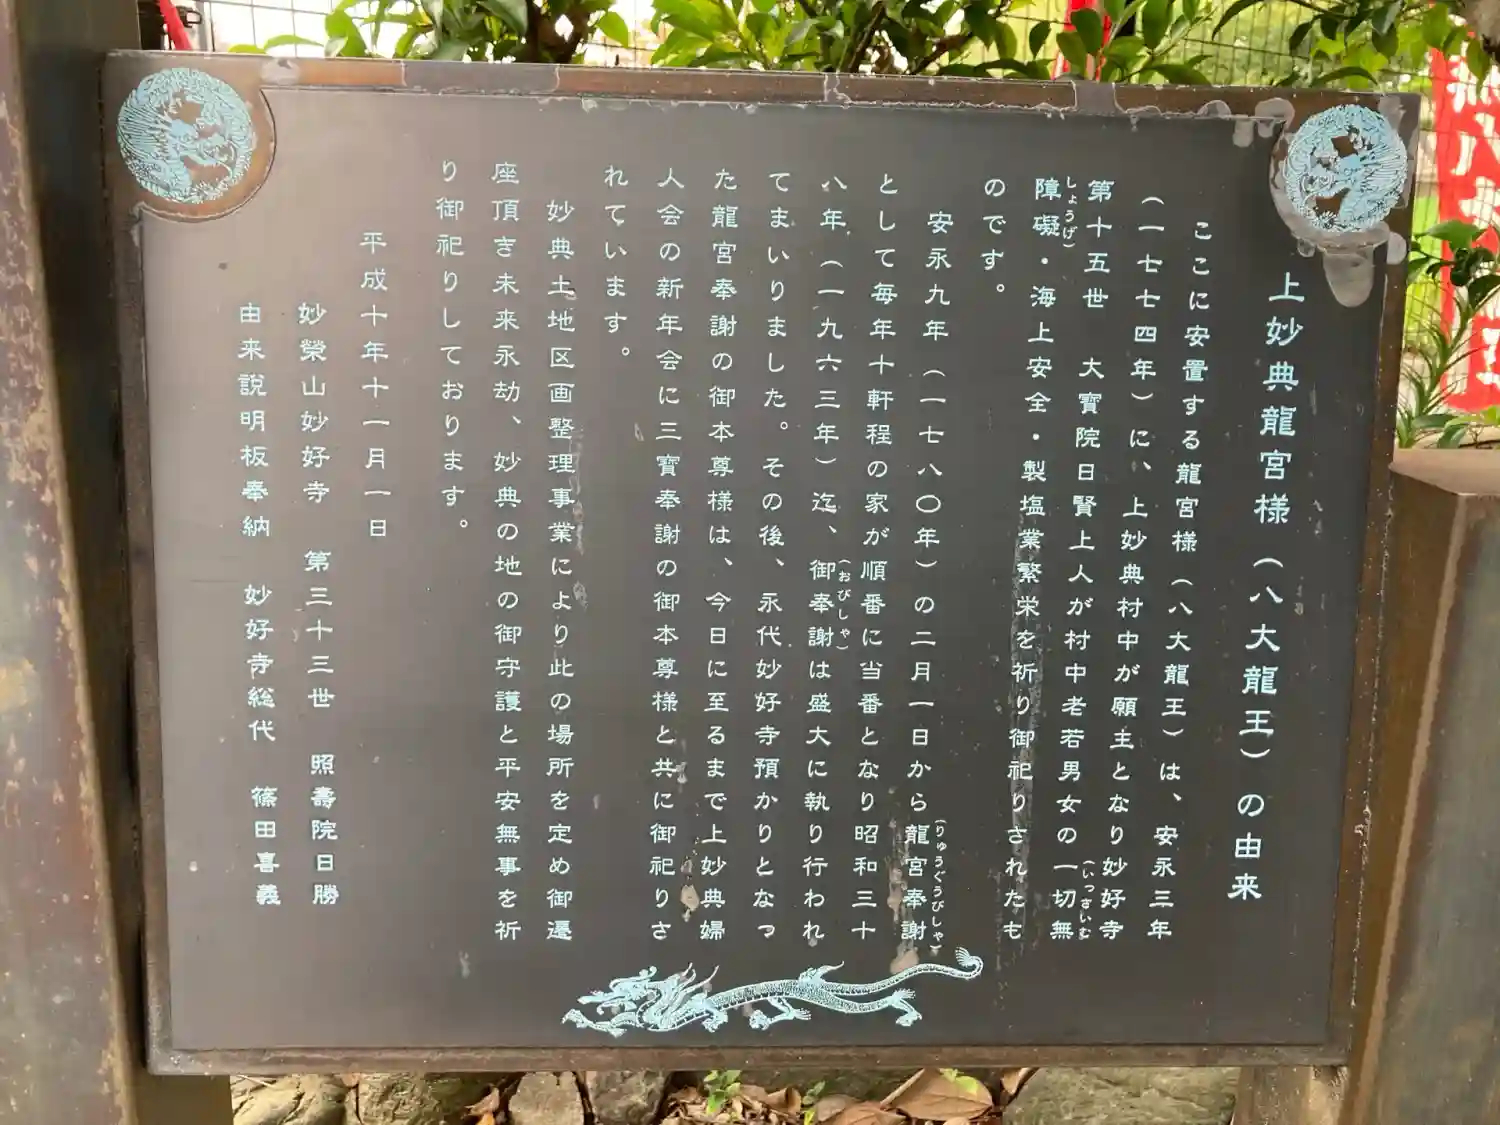 上妙典龍宮様（八大龍王）の由来
ここに安置する龍宮様（八大龍王）は、安永三年
（一七七四年）に、上妙典村中が願主となり妙好寺
第十五世　大寶院日賢上人が村中老若男女の一切無(いっさいむ)
障礙(しょうげ)・海上安全・製塩業繁栄を祈り御祀りされたも
のです。
安永九年（一七八〇年）の二月一日から龍宮奉謝(りゅうぐうびしゃ)
として毎年十軒程の家が順番に当番となり昭和三十
八年（一九六三年）迄、御奉謝(おびしゃ)は盛大に執り行われ
てまいりました。その後、永代妙好寺預かりとなっ
た龍宮奉謝の御本尊様は、今日に至るまで上妙典婦
人会の新年会に三寶奉謝の御本尊様と共に御祀りさ
れています。
妙典土地区画整理事業により此の場所を定め御遷
座頂き未来永劫、妙典の地の御守護と平安無事を祈
り御祀りしております。
平成十年十一月一日
妙榮山妙好寺　第三十三世　照壽院日勝
由来説明板奉納　妙好寺総代　篠田喜義